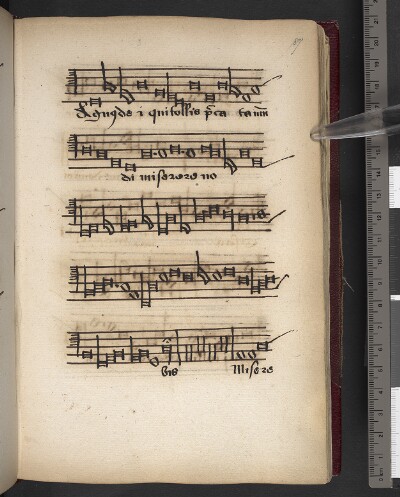 Agnus de i qui tollis p̄cca ta mū
di miserere no
bis Misere